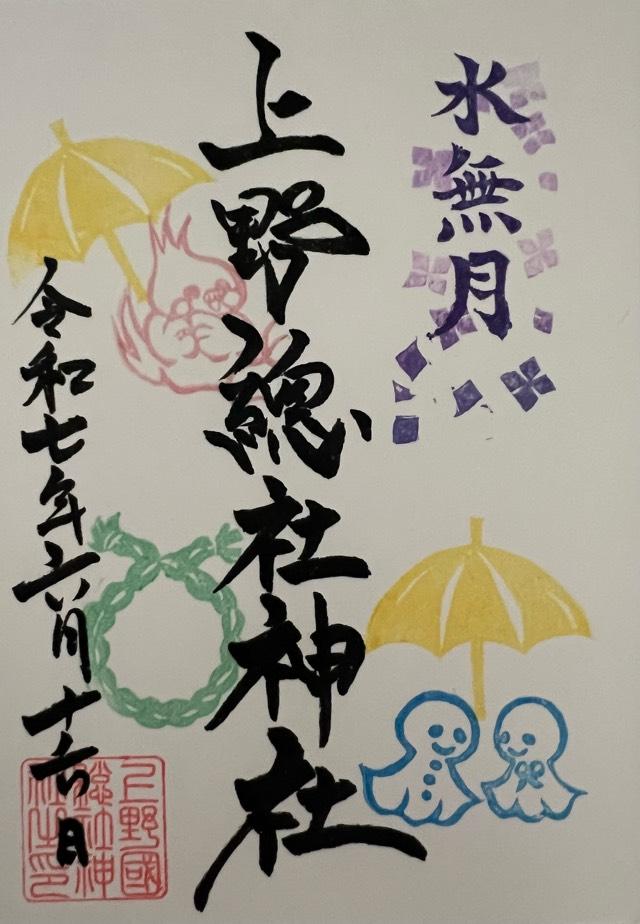 水無月
上野總社神社
令和七年六月十六日
上野國
総社神
社之印